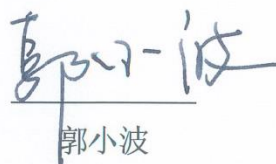 郭小波
郭小波